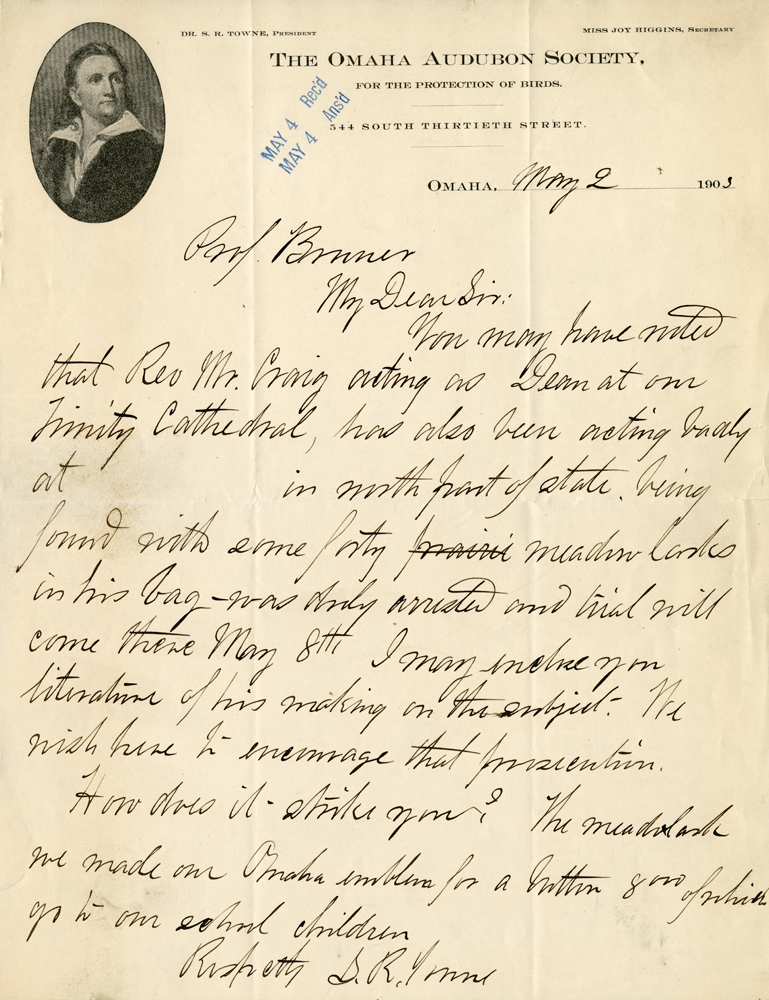 DR. S. R. TOWNE, PRESIDENT
MISS JOY HIGGINS, SECRETARY
THE OMAHA AUDUBON SOCIETY,
FOR THE PROTECTION OF BIRDS.
544 SOUTH THIRTIETH STREET.
MAY 4 Rec'd
MAY 4 Ans'd
OMAHA, May 2 1903
Prof. Bruner
My Dear Sir:
You may have noted
that Rev Mr. Craig acting as Dean at our
Trinity Cathedral, has also been acting badly
at in north part of state. being
found with some forty prairie meadow larks
in his bag - was duly arrested and trial will
come there May 8th I may enclose you
literature of his making on the subject. We
wish here to encourage that prosecution.
How does it strike you? The meadolark
we made our Omaha emblem for a button 8000 of which
go to our school children
Respectfly S. R. Towne